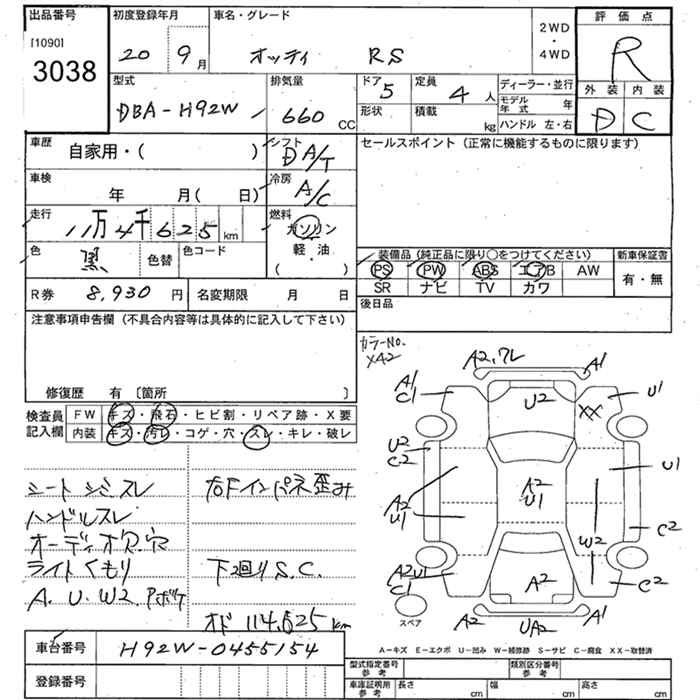 出品番号
[1090]
3038
初度登録年月
20 9月
車名・グレード
オッティ RS
2WD
・
4WD
評価点
R
外装 内装
D C
型式
DBA-H92W
排気量
660 CC
ドア 5
形状
定員 4人
積載 kg
ディーラー・並行
モデル年式 年
ハンドル 左・右
車歴
自家用・( )
シフト
D A/T
セールスポイント (正常に機能するものに限ります)
車検
年 月( 日)
冷房
A/C
走行
11万4千625km
燃料
ガソリン
軽・油
( )
色
黒
色替
色コード
装備品 (純正品に限り○をつけてください)
PS PW ABS エアB AW
SR ナビ TV カワ
新車保証書
有・無
R券 8,930円
名変期限 月 日
後日品
注意事項申告欄 (不具合内容等は具体的に記入して下さい)
修復歴 有 〔箇所 〕
カラーNo.
X42
検査員
記入欄
FW キズ・飛石・ヒビ割・リペア跡・X要
内装 キズ・汚レ・コゲ・穴・スレ・キレ・破レ
シートシミスレ
ハンドルスレ
オーディオ欠.穴
ライトくもり
A.U.W2.Pボケ
右Fインパネ歪み
下回りS.C.
オド114,625km
A2,ワレ
A1
A1
C1
U2
XX
U1
U2
C2
A2
U1
A2
U1
U1
W2
C2
A2U1
C1
A2
C2
スペア
A2
UA2
A1
A-キズ E-エクボ U-凹み W-補修跡 S-サビ C-腐食 XX-取替済
車台番号
H92W-0455154
登録番号
型式指定番号
参考
類別区分番号
参考
車庫証明用
参考
長さ cm
幅 cm
高さ cm